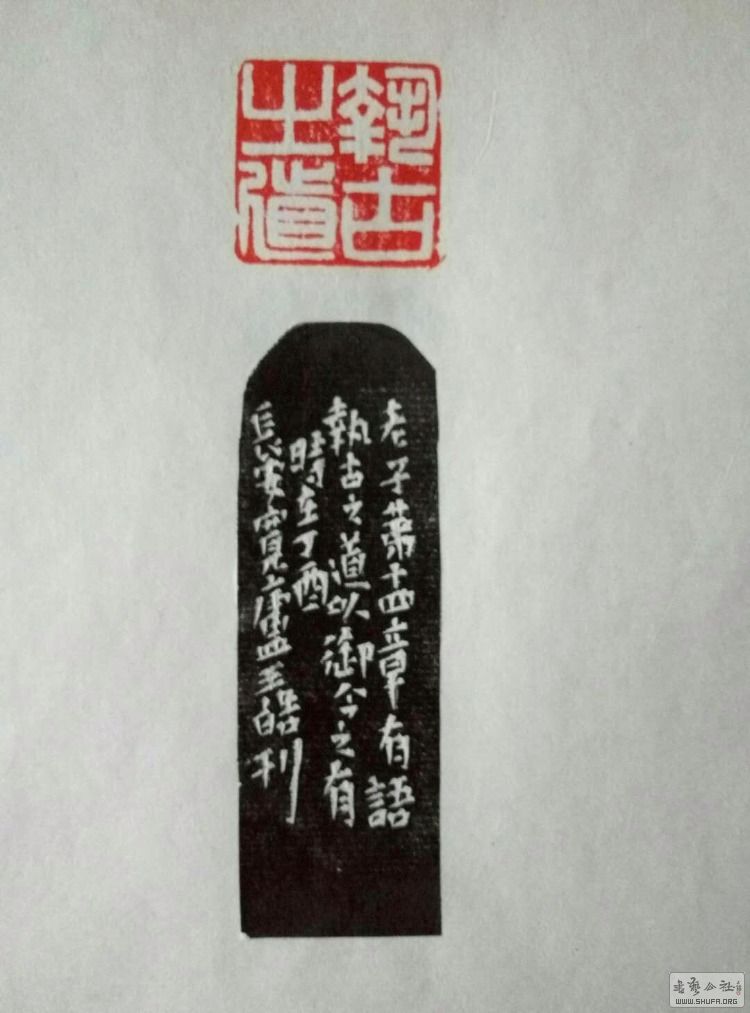 執古
之道
老子第十四章有語
執古之道以御今之有
時在丁酉
長安寬盧王皓刊
书艺公社
WWW.SHUFA.ORG